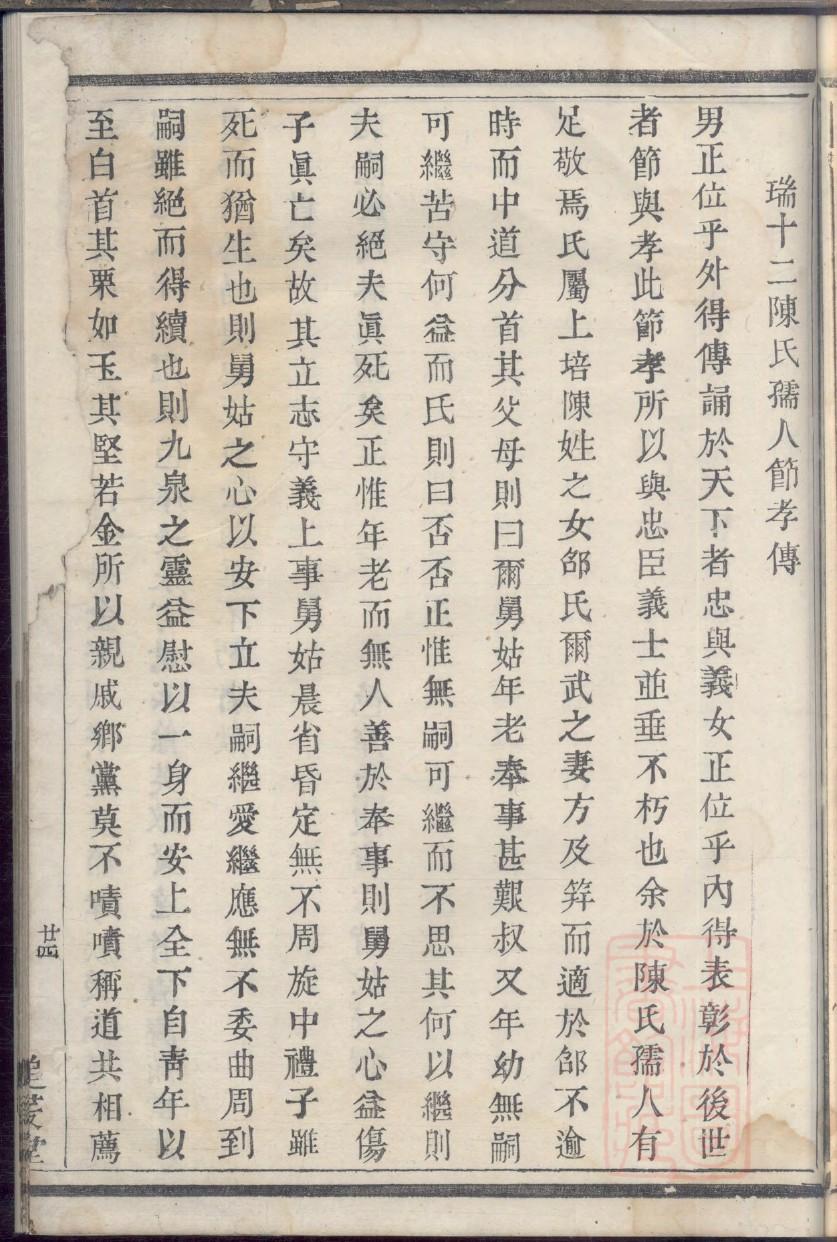 瑞十二陳氏孺人節孝傳
男正位乎外得傳誦於天下者忠與義女正位乎內得表彰於後世
者節與孝此節孝所以與忠臣義士並垂不朽也余於陳氏孺人有
足敬焉氏屬上培陳姓之女郃氏爾武之妻方及笄而適於郃不逾
時而中道分首其父母則曰爾舅姑年老奉事甚艱叔又年幼無嗣
可繼苦守何益而氏則曰否否正惟無嗣可繼而不思其何以繼則
夫嗣必絕夫眞死矣正惟年老而無人善於奉事則舅姑之心益傷
子眞亡矣故其立志守義上事舅姑晨省昏定無不周旋中禮子雖
死而猶生也則舅姑之心以安下立夫嗣繼愛繼應無不委曲周到
嗣雖絕而得續也則九泉之靈益慰以一身而安上全下自靑年以
至白首其栗如玉其堅若金所以親戚鄉黨莫不嘖嘖稱道共相薦
廿四